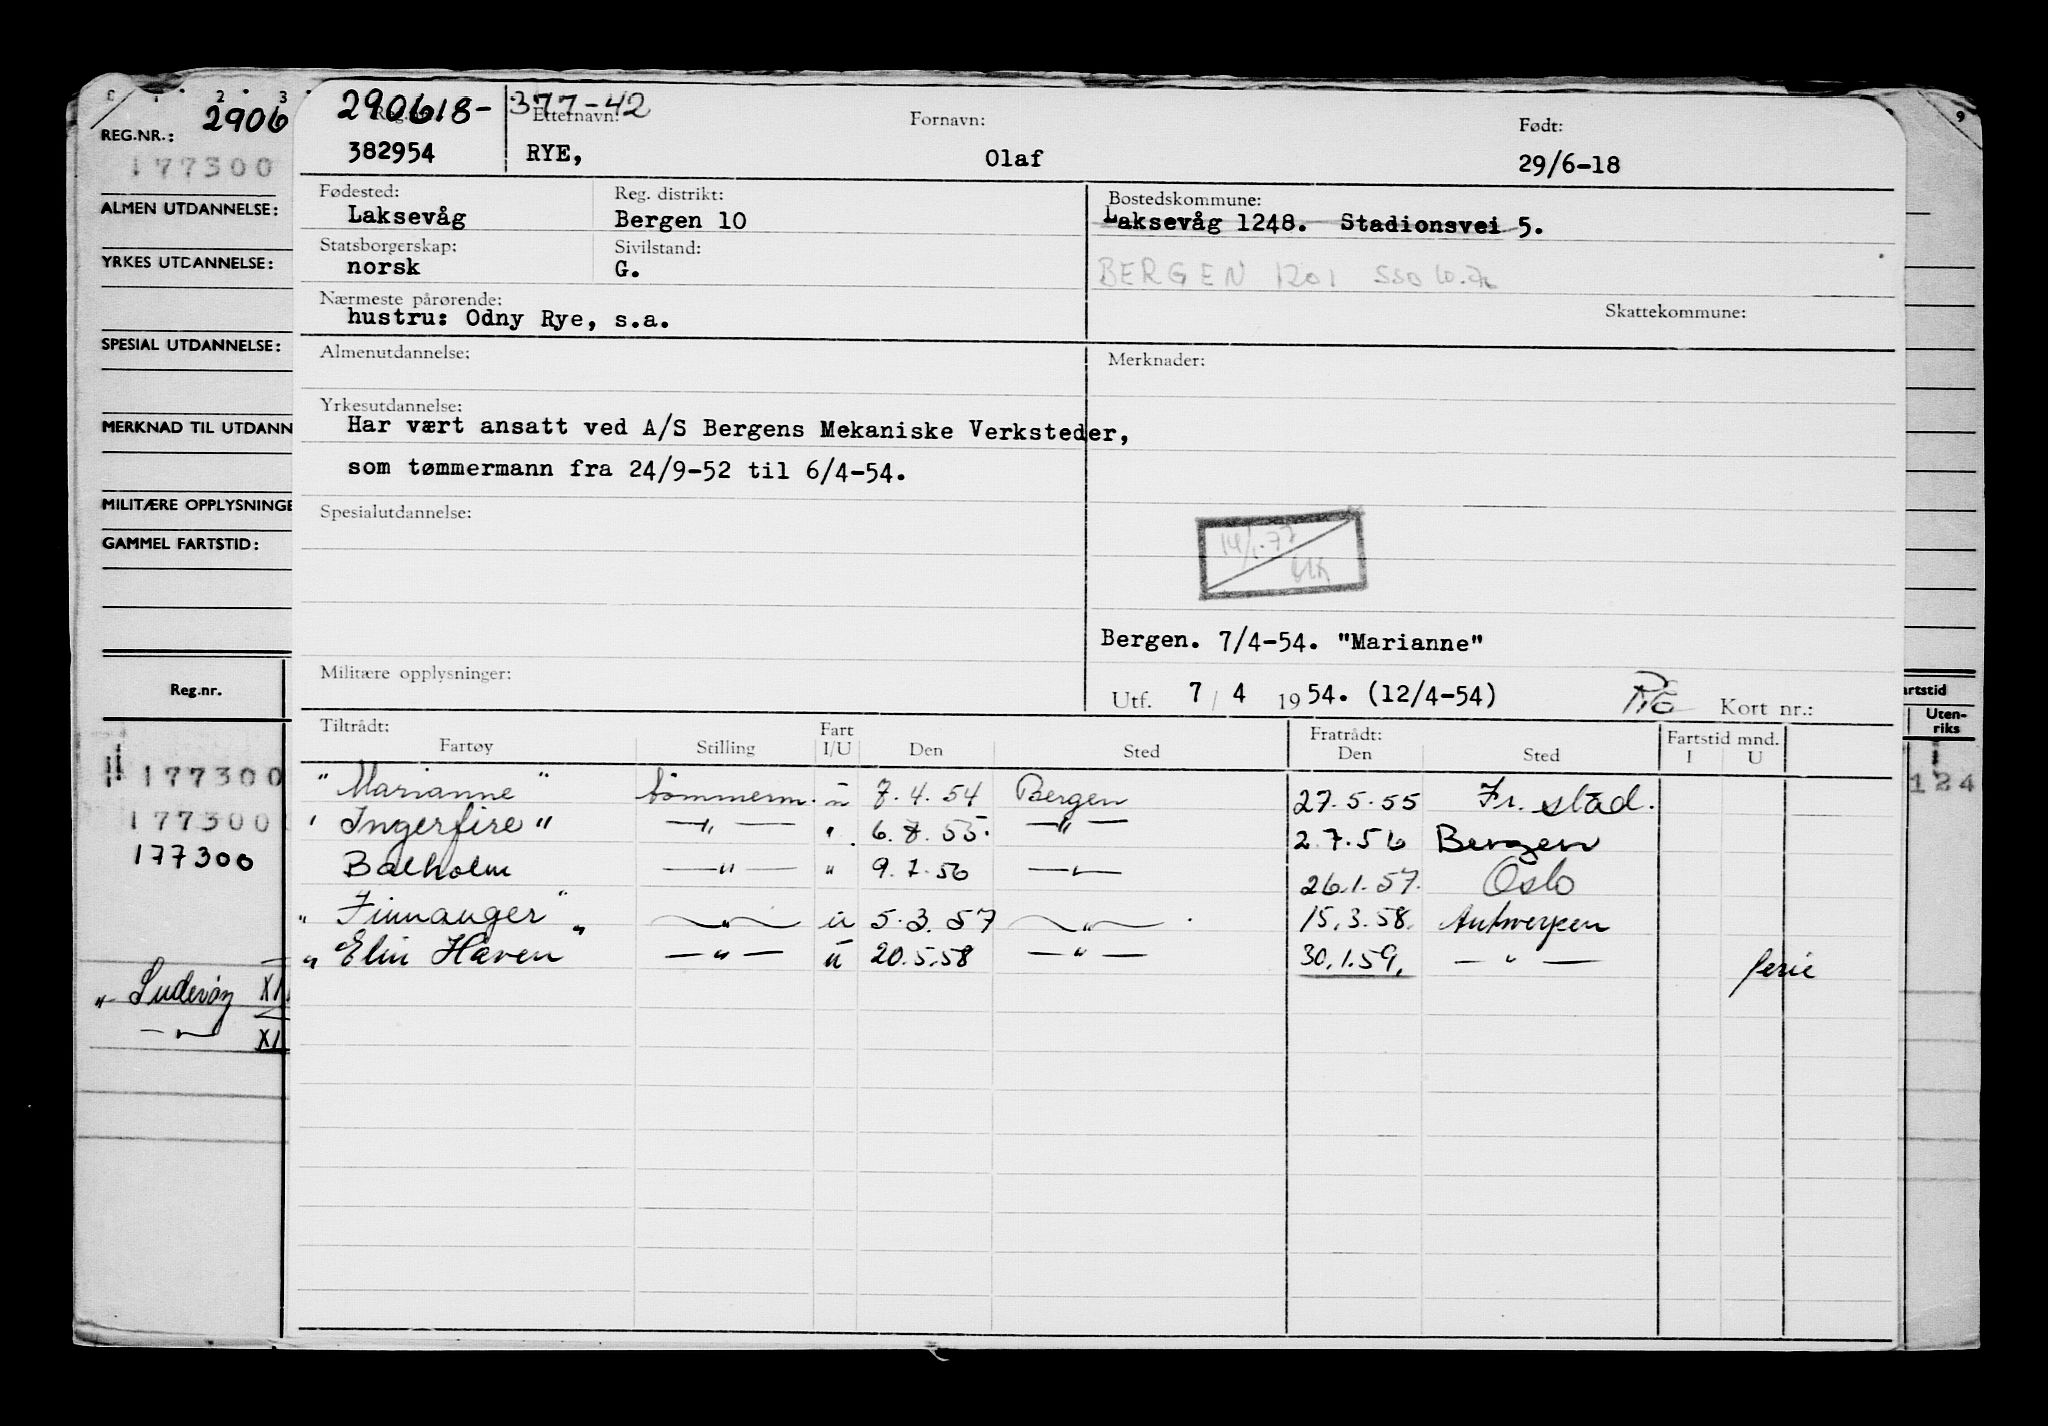 290618-377-42
Etternavn: Fornavn: Født:
382954 RYE, Olaf 29/6-18
Fødested: Reg. distrikt: Bostedskommune:
Laksevåg Bergen 10 Laksevåg 1248. Stadionsvei 5.
Statsborgerskap: Sivilstand:
norsk G. BERGEN 1201
Nærmeste pårørende: Skattekommune:
hustru: Odny Rye, s.a.
Almenutdannelse: Merknader:
Yrkesutdannelse:
Har vært ansatt ved A/S Bergens Mekaniske Verksteder,
som tømmermann fra 24/9-52 til 6/4-54.
Spesialutdannelse:
Bergen. 7/4-54. "Marianne"
Militære opplysninger: Utf. 7 / 4 1954. (12/4-54) Kort nr.:
Tiltrådt: Fart Fratrådt: Fartstid mnd.
Fartøy Stilling I/U Den Sted Den Sted I U
" Marianne " tømmerm. u 7. 4. 54 Bergen 27. 5. 55 Fr. stad.
" Ingerfire " — " — " 6. 7. 55. — " — 2. 7. 56 Bergen
Balholm — " — " 9. 7. 56 — " — 26. 1. 57. Oslo
" Finnanger " — " — u 5. 3. 57 — " — 15. 3. 58. Antwerpen
" Elin Haven — " — u 20. 5. 58 — " — 30. 1. 59. — " — ferie
2 3
REG.NR.: 2906
177300
ALMEN UTDANNELSE:
YRKES UTDANNELSE:
SPESIAL UTDANNELSE:
MERKNAD TIL UTDANN
MILITÆRE OPPLYSNINGE
GAMMEL FARTSTID:
Reg.nr.
177300
177300
177300
" Suderøy XI
— " — XI
9
artstid
Uten-
riks
124